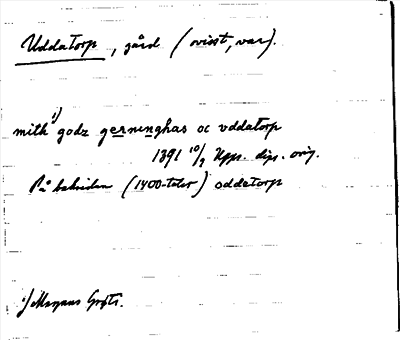 Uddatorp, gård (ovisst, var).
mith 1) godz gerninghas oc vddatorp
1391 10/9 Upps. dipl. orig.
På baksidan (1400-talet) oddatorp
1) Magnus